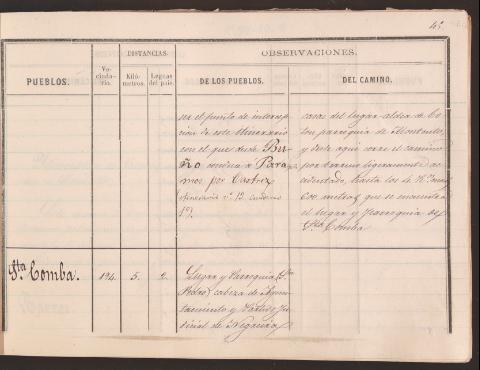 45
PUEBLOS.
Ve-
cinda-
rio.
DISTANCIAS.
Kiló-
metros.
Leguas
del pais.
OBSERVACIONES.
DE LOS PUEBLOS.
DEL CAMINO.
ser el punto de intersep
cion de este Itinerario
con el que desde Bu-
ño conduce a Para-
mos por Castriz
(Itinerario nº 13. cuaderno
1º).
casas del lugar aldea de
ton parroquia de
y desde aqui corre el camino
por terreno ligeramente ac-
cidentado, hasta los 4
600 metros que se encuentra
el lugar y parroquia de
Sta Comba
Sta Comba.
194.
5.
2.
Lugar y Parroquia (Sn
Pedro) cabeza de Ayun-
tamiento y Partido ju-
dicial de Negreira